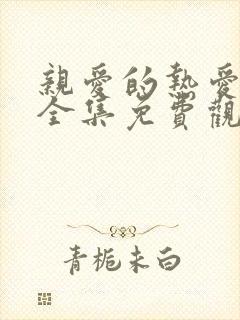 親愛的熱愛
全集免費觀
青栀未白